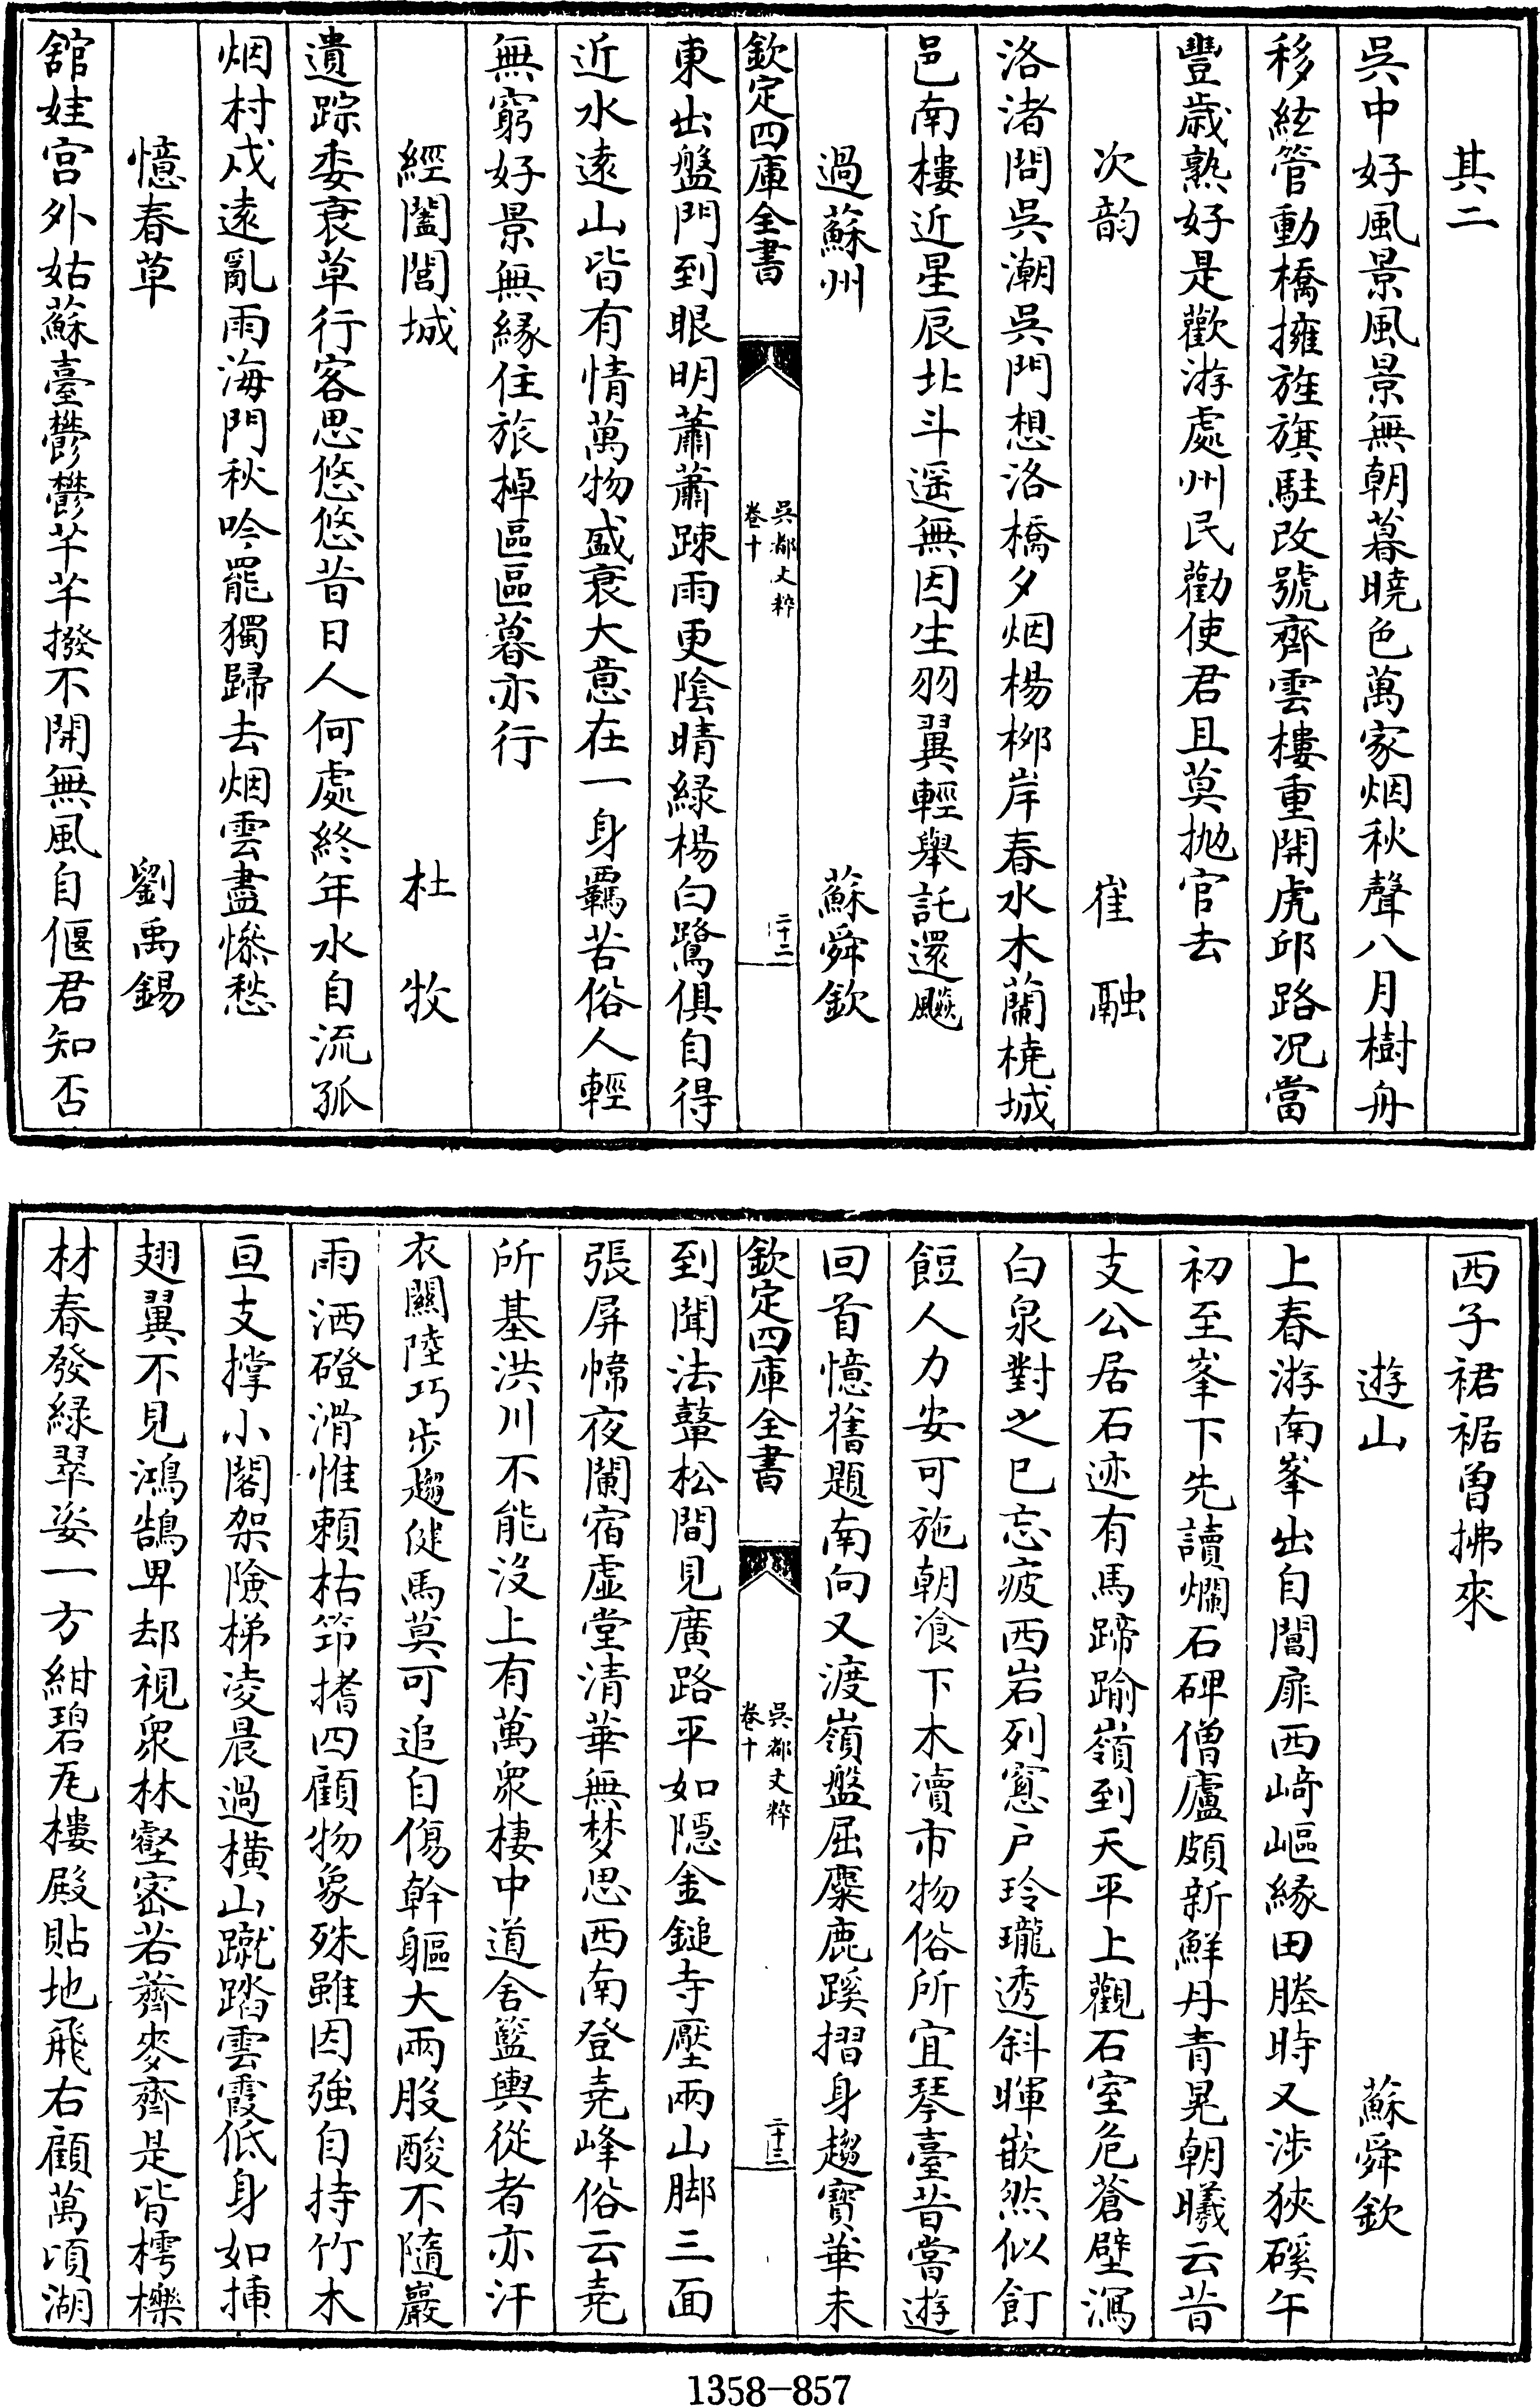 其二
吳中好風景風景無朝暮曉色萬家烟秋聲八月樹舟
移絃管動橋擁旌旗駐改號齊雲樓重開虎邱路况當
豐歲熟好是歡游處州民勸使君且莫抛官去
次韵 崔融
洛渚問吳潮吳門想洛橋夕烟楊栁岸春水木蘭橈城
邑南樓近星辰北斗遥無因生羽翼輕舉託還飈
過蘇州 蘇舜欽
欽定四庫全書 吳都文粹 卷十 二十二
東出盤門到眼明蕭蕭踈雨更陰晴緑楊白鷺俱自得
近水遠山皆有情萬物盛衰大意在一身羈苦俗人輕
無窮好景無緣住旅棹區區暮亦行
經闔閭城 杜牧
遺踪委衰草行客思悠悠昔日人何處終年水自流孤
烟村戍遠亂雨海門秋吟罷獨歸去烟雲盡慘愁
憶春草 劉禹錫
舘娃宫外姑蘇臺鬱鬱芊芊撥不開無風自偃君知否
西子裙裾曾拂來
遊山 蘇舜欽
上春游南峯出自閶扉西﨑嶇緣田塍時又涉狹磎午
初至峯下先讀爛石碑僧廬頗新鮮丹青晃朝曦云昔
支公居石迹有馬蹄踰嶺到天平上觀石室危蒼壁瀉
白泉對之已忘疲西岩列窻户玲瓏透斜暉嵌然似飣
餖人力安可施朝飡下木瀆市物俗所宜琴臺昔嘗遊
回首憶舊題南向又渡嶺盤屈麋鹿蹊摺身趨寶華未
欽定四庫全書 吳都文粹 卷十 二十三
到聞法鼙松間見廣路平如隱金鎚寺壓兩山脚三面
張屏幃夜闌宿虚堂清華無梦思西南登堯峰俗云堯
所基洪川不能沒上有萬衆棲中道舍籃輿從者亦汗
衣闕陸巧步趨健馬莫可追自傷幹軀大兩股酸不隨巖
雨洒磴滑惟賴枯笻搘四顧物象殊雖因強自持竹木
亘支撑小閣架險梯凌晨過横山蹴踏雲霞低身如揷
翅翼不見鴻鵠卑却視衆林壑密若薺麥齊是皆樗櫟
材春發緑翠姿一方紺碧瓦樓殿貼地飛右顧萬頃湖
1358-857